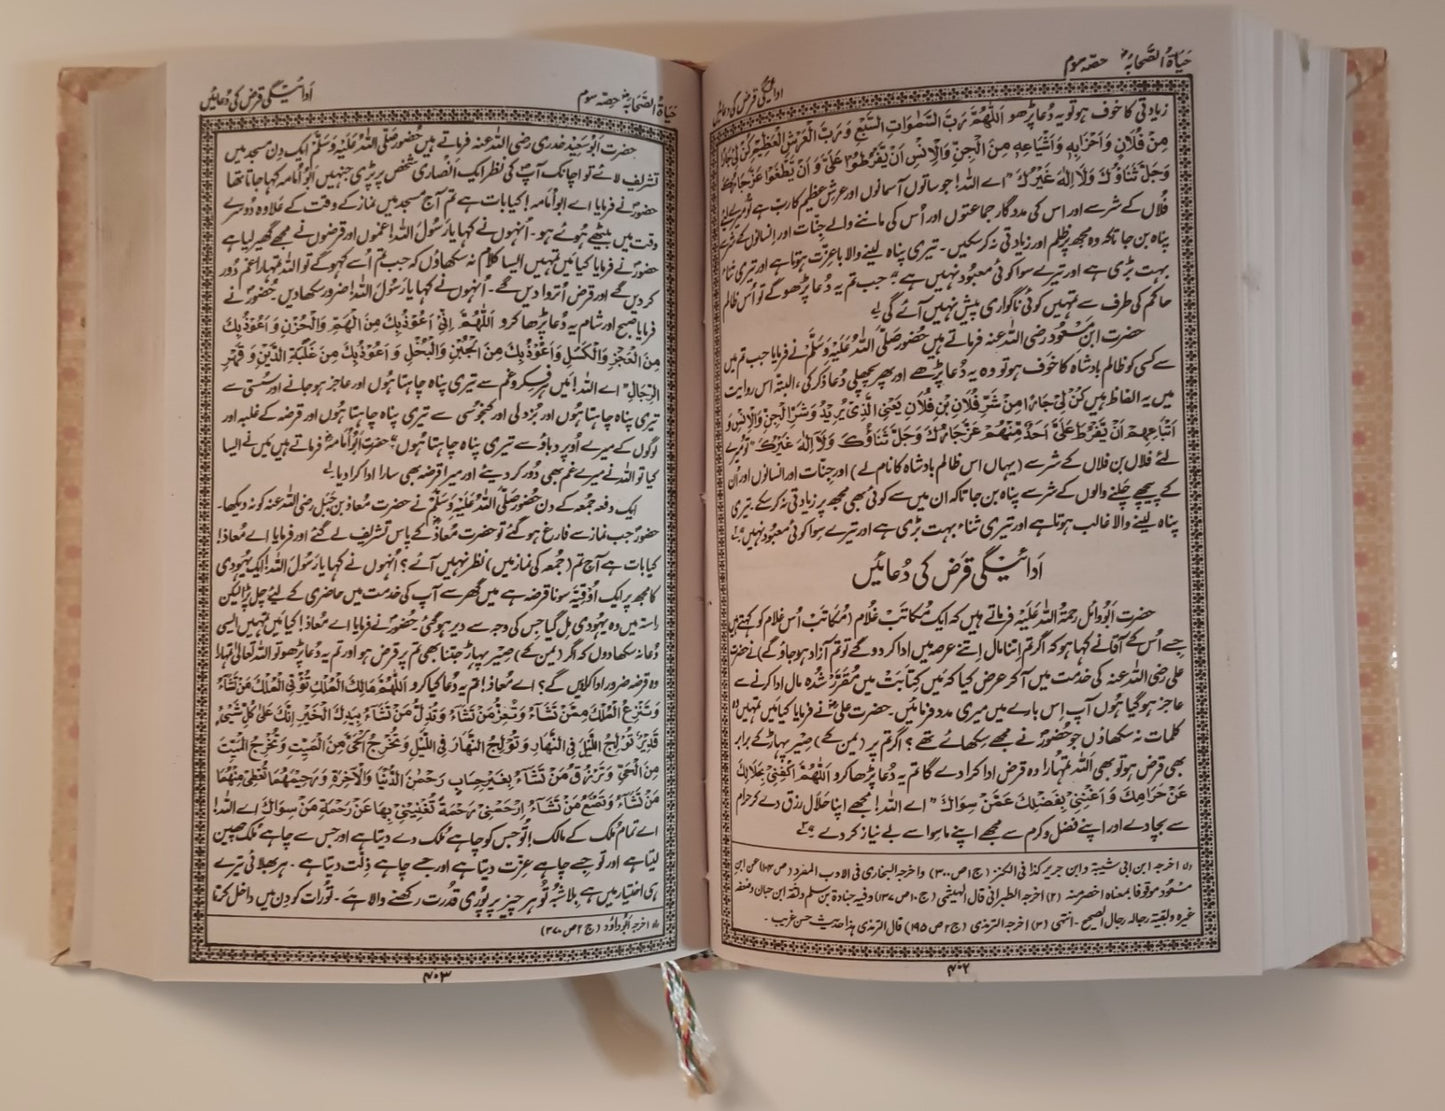 حَیَاۃُ الصَّحَابَہؓ حصّہ سوم
ادائیگی قرض کی دعائیں
زیادتی کا خوف ہو تو یہ دُعا پڑھو اَللّٰهُمَّ رَبَّ السَّمٰوَاتِ السَّبْعِ وَ رَبَّ الْعَرْشِ الْعَظِيْمِ كُنْ لِّيْ جَارًا
مِنْ فُلَانٍ وَ اَحْزَابِهٖ وَ اَشْيَاعِهٖ مِنَ الْجِنِّ وَالْاِنْسِ اَنْ يَّفْرُطُوْا عَلَيَّ وَ اَنْ يَّطْغَوْا عَزَّ جَارُكَ
وَجَلَّ ثَنَاؤُكَ وَلَا اِلٰهَ غَيْرُكَ ”اے اللہ! جو ساتوں آسمانوں اور عرش عظیم کا ربّ ہے تو میرے لئے
فلاں کے شر سے اور اس کی مددگار جماعتوں اور اُس کی ماننے والے جِنّات اور انسانوں کے شر سے
پناہ بن جا تاکہ وہ مجھ پر ظلم اور زیادتی نہ کر سکیں۔ تیری پناہ لینے والا باعزت ہوتا ہے اور تیری ثناء
بہت بڑی ہے اور تیرے سوا کوئی معبود نہیں ہے“ جب تم یہ دُعا پڑھو گے تو اُس ظالم
حاکم کی طرف سے تمہیں کوئی ناگواری پیش نہیں آئے گی لے
حضرت ابن مسعود رضی اللہ عنہ فرماتے ہیں حضور صَلَّی اللہُ عَلَیْہِ وَسَلَّمَ نے فرمایا جب تم میں
سے کسی کو ظالم بادشاہ کا خوف ہو تو وہ یہ دُعا پڑھے اور پھر پچھلی دُعا ذکر کی، البتہ اس روایت
میں یہ الفاظ ہیں كُنْ لِّيْ جَارًا مِنْ شَرِّ فُلَانِ بْنِ فُلَانٍ يَعْنِي الَّذِيْ يُرِيْدُ وَشَرِّ الْجِنِّ وَالْاِنْسِ وَ
اَتْبَاعِهِمْ اَنْ يَّفْرُطَ عَلَيَّ اَحَدٌ مِّنْهُمْ عَزَّ جَارُكَ وَجَلَّ ثَنَاؤُكَ وَلَا اِلٰهَ غَيْرُكَ ”تو میرے
لئے فلاں بن فلاں کے شر سے (یہاں اس ظالم بادشاہ کا نام لے) اور جِنّات اور انسانوں اور اُن
کے پیچھے چلنے والوں کے شر سے پناہ بن جا تاکہ ان میں سے کوئی بھی مجھ پر زیادتی نہ کر سکے۔ تیری
پناہ لینے والا غالب ہوتا ہے اور تیری ثناء بہت بڑی ہے اور تیرے سوا کوئی معبود نہیں“
اَدائیگی قرض کی دُعائیں
حضرت اَبُو وائل رحمۃُ اللہ علیہ فرماتے ہیں کہ ایک مُکاتَب غُلام (مُکاتَب اُس غلام کو کہتے ہیں
جسے اُس کے آقا نے کہا ہو کہ اگر تم اِتنا مال اِتنے عرصہ میں ادا کر دو گے تو تم آزاد ہو جاؤ گے) نے حضرت
علی رضی اللہ عنہ کی خدمت میں آکر عرض کیا کہ میں کِتابَت میں مُقرّر شُدہ مال ادا کرنے سے
عاجز ہو گیا ہُوں آپ اِس بارے میں میری مدد فرمائیں۔ حضرت علیؓ نے فرمایا کیا میں تمہیں وہ
کلمات نہ سکھاؤں جو حُضُورؐ نے مجھے سکھائے تھے؟ اگر تم پر (یمن کے) صِیر پہاڑ کے برابر
بھی قرض ہو تو بھی اللہ تمہارا وہ قرض ادا کرا دے گا تم یہ دُعا پڑھا کرو اَللّٰهُمَّ اكْفِنِيْ بِحَلَالِكَ
عَنْ حَرَامِكَ وَ اَغْنِنِيْ بِفَضْلِكَ عَمَّنْ سِوَاكَ ”اے اللہ! مجھے اپنا حَلال رزق دے کر حرام
سے بچا دے اور اپنے فضل و کرم سے مجھے اپنے ماسوا سے بے نیاز کر دے“
اخرجہ ابن ابی شیبۃ وابن جریر کذا فی الکنز (ج ۱ ص ۳۰۰) واخرجہ البخاری فی الادب المفرد (ص ۱۰۴) عن ابن
مسعود موقوفا بمعناہ اخصر منہ (۲) اخرجہ الطبرانی قال الہیثمی (ج ۱۰ ص ۱۳۷) وفیہ جنادۃ بن سلم وثقہ ابن حبان وضعفہ
غیرہ وبقیۃ رجالہ رجال الصحیح۔ انتہی (۳) اخرجہ الترمذی (ج ۲ ص ۱۹۵) قال الترمذی ہذا حدیث حسن غریب۔
۴۰۲
حَیَاۃُ الصَّحَابَہؓ حصّہ سوم
اَدائیگی قرض کی دُعائیں
حضرت اَبُو سعید خدری رضی اللہ عنہ فرماتے ہیں حضور صَلَّی اللہُ عَلَیْہِ وَسَلَّمَ ایک دِن مسجد میں
تشریف لائے تو اچانک آپؐ کی نظر ایک انصاری شخص پر پڑی جنہیں اَبُو اُمامہ کہا جاتا تھا
حضورؐ نے فرمایا اے ابُو اُمامہ! کیا بات ہے تم آج مسجد میں نماز کے وقت کے علاوہ دُوسرے
وقت میں بیٹھے ہُوئے ہو۔ اُنہوں نے کہا یارَسُولَ اللہ! غموں اور قرضوں نے مجھے گھیر لیا ہے
حضورؐ نے فرمایا کیا میں تمہیں ایسا کلام نہ سکھاؤں کہ جب تم اُسے کہو گے تو اللہ تمہارا غم دُور
کر دیں گے اور قرض اُتروا دیں گے۔ اُنہوں نے کہا یا رَسُولَ اللہ! ضرور سکھا دیں حُضُورؐ نے
فرمایا صُبح اور شام یہ دُعا پڑھا کرو اَللّٰهُمَّ اِنِّيْ اَعُوْذُ بِكَ مِنَ الْهَمِّ وَالْحُزْنِ وَ اَعُوْذُ بِكَ
مِنَ الْعَجْزِ وَالْكَسَلِ وَاَعُوْذُ بِكَ مِنَ الْجُبْنِ وَالْبُخْلِ وَ اَعُوْذُ بِكَ مِنْ غَلَبَةِ الدَّيْنِ وَ قَهْرِ
الرِّجَالِ ”اے اللہ! میں ہر فکر و غم سے تیری پناہ چاہتا ہُوں اور عاجز ہو جانے اور سُستی سے
تیری پناہ چاہتا ہُوں اور بُزدلی اور کنجُوسی سے تیری پناہ چاہتا ہُوں اور قرضہ کے غلبہ اور
لوگوں کے میرے اُوپر دباؤ سے تیری پناہ چاہتا ہُوں“ حضرت اَبُو اُمامہؓ فرماتے ہیں میں نے ایسا
کیا تو اللہ نے میرے غم بھی دُور کر دیئے اور میرا قرضہ بھی سارا ادا کرا دیا لے
ایک دفعہ جُمعہ کے دن حُضُور صَلَّی اللہُ عَلَیْہِ وَسَلَّمَ نے حضرت مُعاذ بن جَبَل رضی اللہ عنہ کو نہ دیکھا۔
حضورؐ جب نماز سے فارغ ہو گئے تو حضرت مُعاذؓ کے پاس تشریف لے گئے اور فرمایا اے مُعاذ!
کیا بات ہے آج تم (جُمعہ کی نماز میں) نظر نہیں آئے؟ اُنہوں نے کہا یا رَسُولَ اللہ! ایک یہودی
کا مجھ پر ایک اُوقیَہ سونا قرضہ ہے میں گھر سے آپ کی خدمت میں حاضری کے لئے چل پڑا لیکن
راستہ میں وہ یہودی مِل گیا جس کی وجہ سے دیر ہو گئی۔ حُضُورؐ نے فرمایا اے مُعاذ! کیا میں تمہیں ایسی
دُعا نہ سکھا دُوں کہ اگر (یمن کے) صِیر پہاڑ جتنا بھی تم پر قرض ہو اور تم یہ دُعا پڑھو تو اللہ تعالیٰ تمہارا
وہ قرضہ ضرور ادا کرائیں گے؟ اے مُعاذ! تم یہ دُعا کیا کرو اَللّٰهُمَّ مَالِكَ الْمُلْكِ تُؤْتِي الْمُلْكَ مَنْ تَشَآءُ
وَتَنْزِعُ الْمُلْكَ مِمَّنْ تَشَآءُ وَتُعِزُّ مَنْ تَشَآءُ وَتُذِلُّ مَنْ تَشَآءُ بِيَدِكَ الْخَيْرُ اِنَّكَ عَلٰى كُلِّ شَيْءٍ
قَدِيْرٌ تُوْلِجُ اللَّيْلَ فِي النَّهَارِ وَ تُوْلِجُ النَّهَارَ فِي اللَّيْلِ وَتُخْرِجُ الْحَيَّ مِنَ الْمَيِّتِ وَتُخْرِجُ الْمَيِّتَ
مِنَ الْحَيِّ وَ تَرْزُقُ مَنْ تَشَآءُ بِغَيْرِ حِسَابٍ رَحْمٰنَ الدُّنْيَا وَالْاٰخِرَةِ وَ رَحِيْمَهُمَا تُعْطِيْ مِنْهُمَا
مَنْ تَشَآءُ وَ تَمْنَعُ مَنْ تَشَآءُ اِرْحَمْنِيْ رَحْمَةً تُغْنِيْنِيْ بِهَا عَنْ رَحْمَةِ مَنْ سِوَاكَ اے اللہ!
اے تمام مُلک کے مالک! تُو جس کو چاہے مُلک دے دیتا ہے اور جس سے چاہے مُلک چھین
لیتا ہے اور تو جسے چاہے عِزّت دیتا ہے اور جسے چاہے ذِلّت دیتا ہے۔ ہر بھلائی تیرے
ہی اختیار میں ہے بلاشُبہ تُو ہر چیز پر پوری قُدرت رکھنے والا ہے۔ تُو رات کو دِن میں داخل کرتا
اخرجہ ابوداؤد (ج ۲ ص ۳۷۰)
۴۰۳